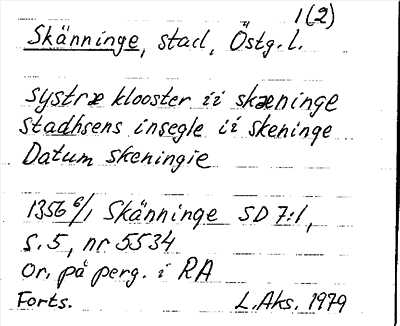 1(2)
Skänninge, stad, Östg.l.
systræ klooster ii skæninge
stadhsens insegle ii skeninge
Datum skeningie
1356 6/1 Skänninge SD 7:1,
s.5, nr 5534
Or. på perg. i RA
Forts. L.Aks. 1979